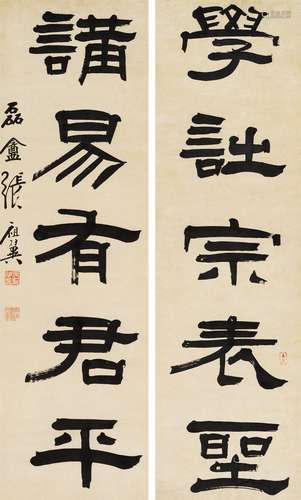 學詘宗表聖
講易有君平
磊盦張祖翼